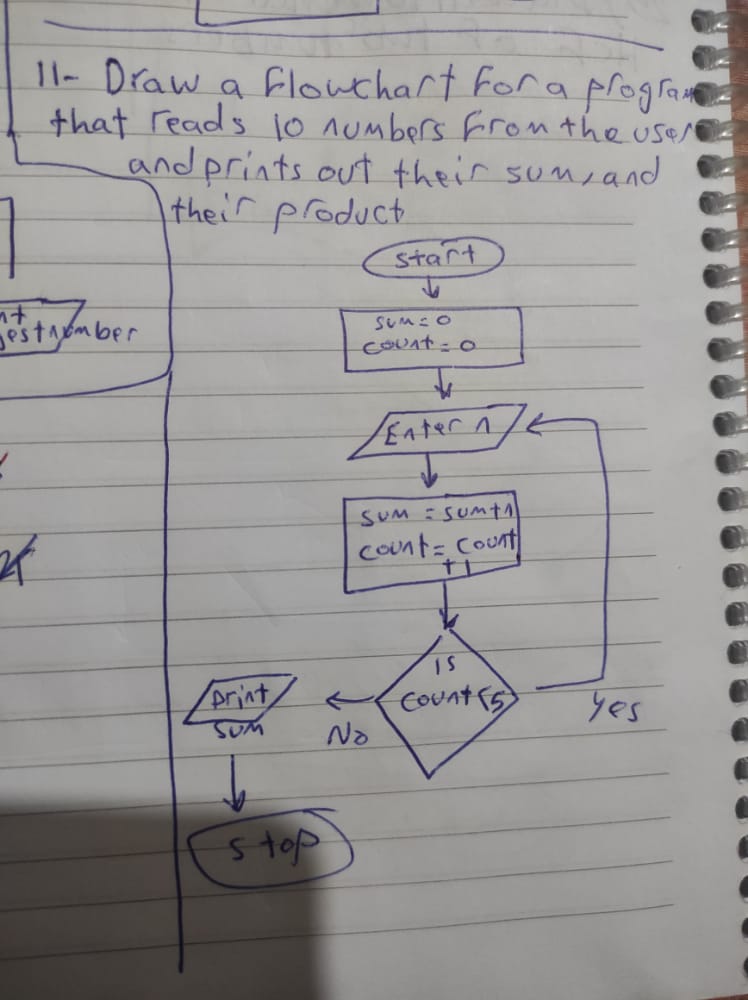 11- Draw a Flowchart For a program
that reads 10 numbers From the user
and prints out their sum, and
their product
start
sum=0
count=0
Enter n
sum = sum+n
count= count
+1
is
count<5
Yes
No
print
sum
stop
nt
gestnumber